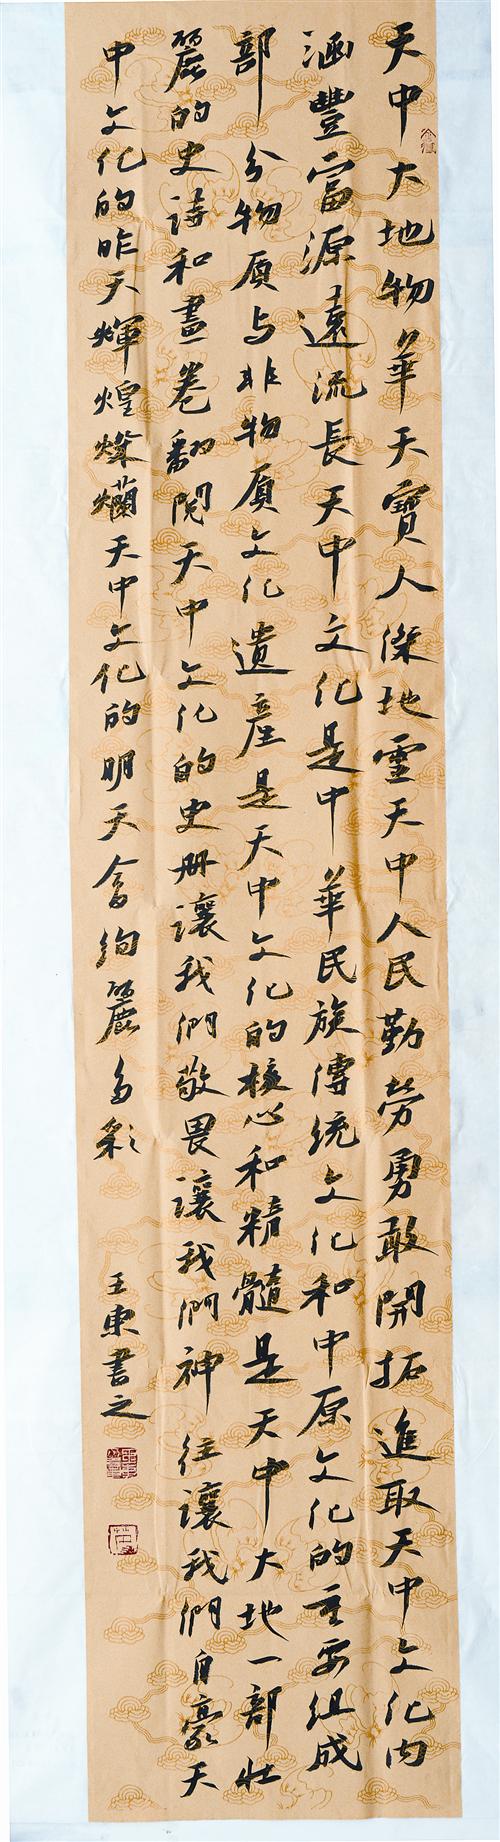 天中大地物華天寶人傑地靈天中人民勤勞勇敢開拓進取天中文化内
涵豐富源遠流長天中文化是中華民族傳統文化和中原文化的重要組成
部分物质与非物质文化遺產是天中文化的核心和精髓是天中大地一部壯
麗的史詩和畫卷翻閱天中文化的史册讓我們敬畏讓我們神往讓我們自豪天
中文化的昨天輝煌燦爛天中文化的明天會绚麗多彩
王東書之